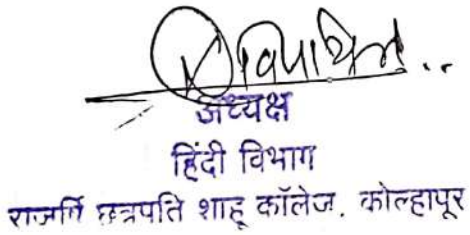 अध्यक्ष
हिंदी विभाग
राजर्षि छत्रपति शाहू कॉलेज. कोल्हापूर